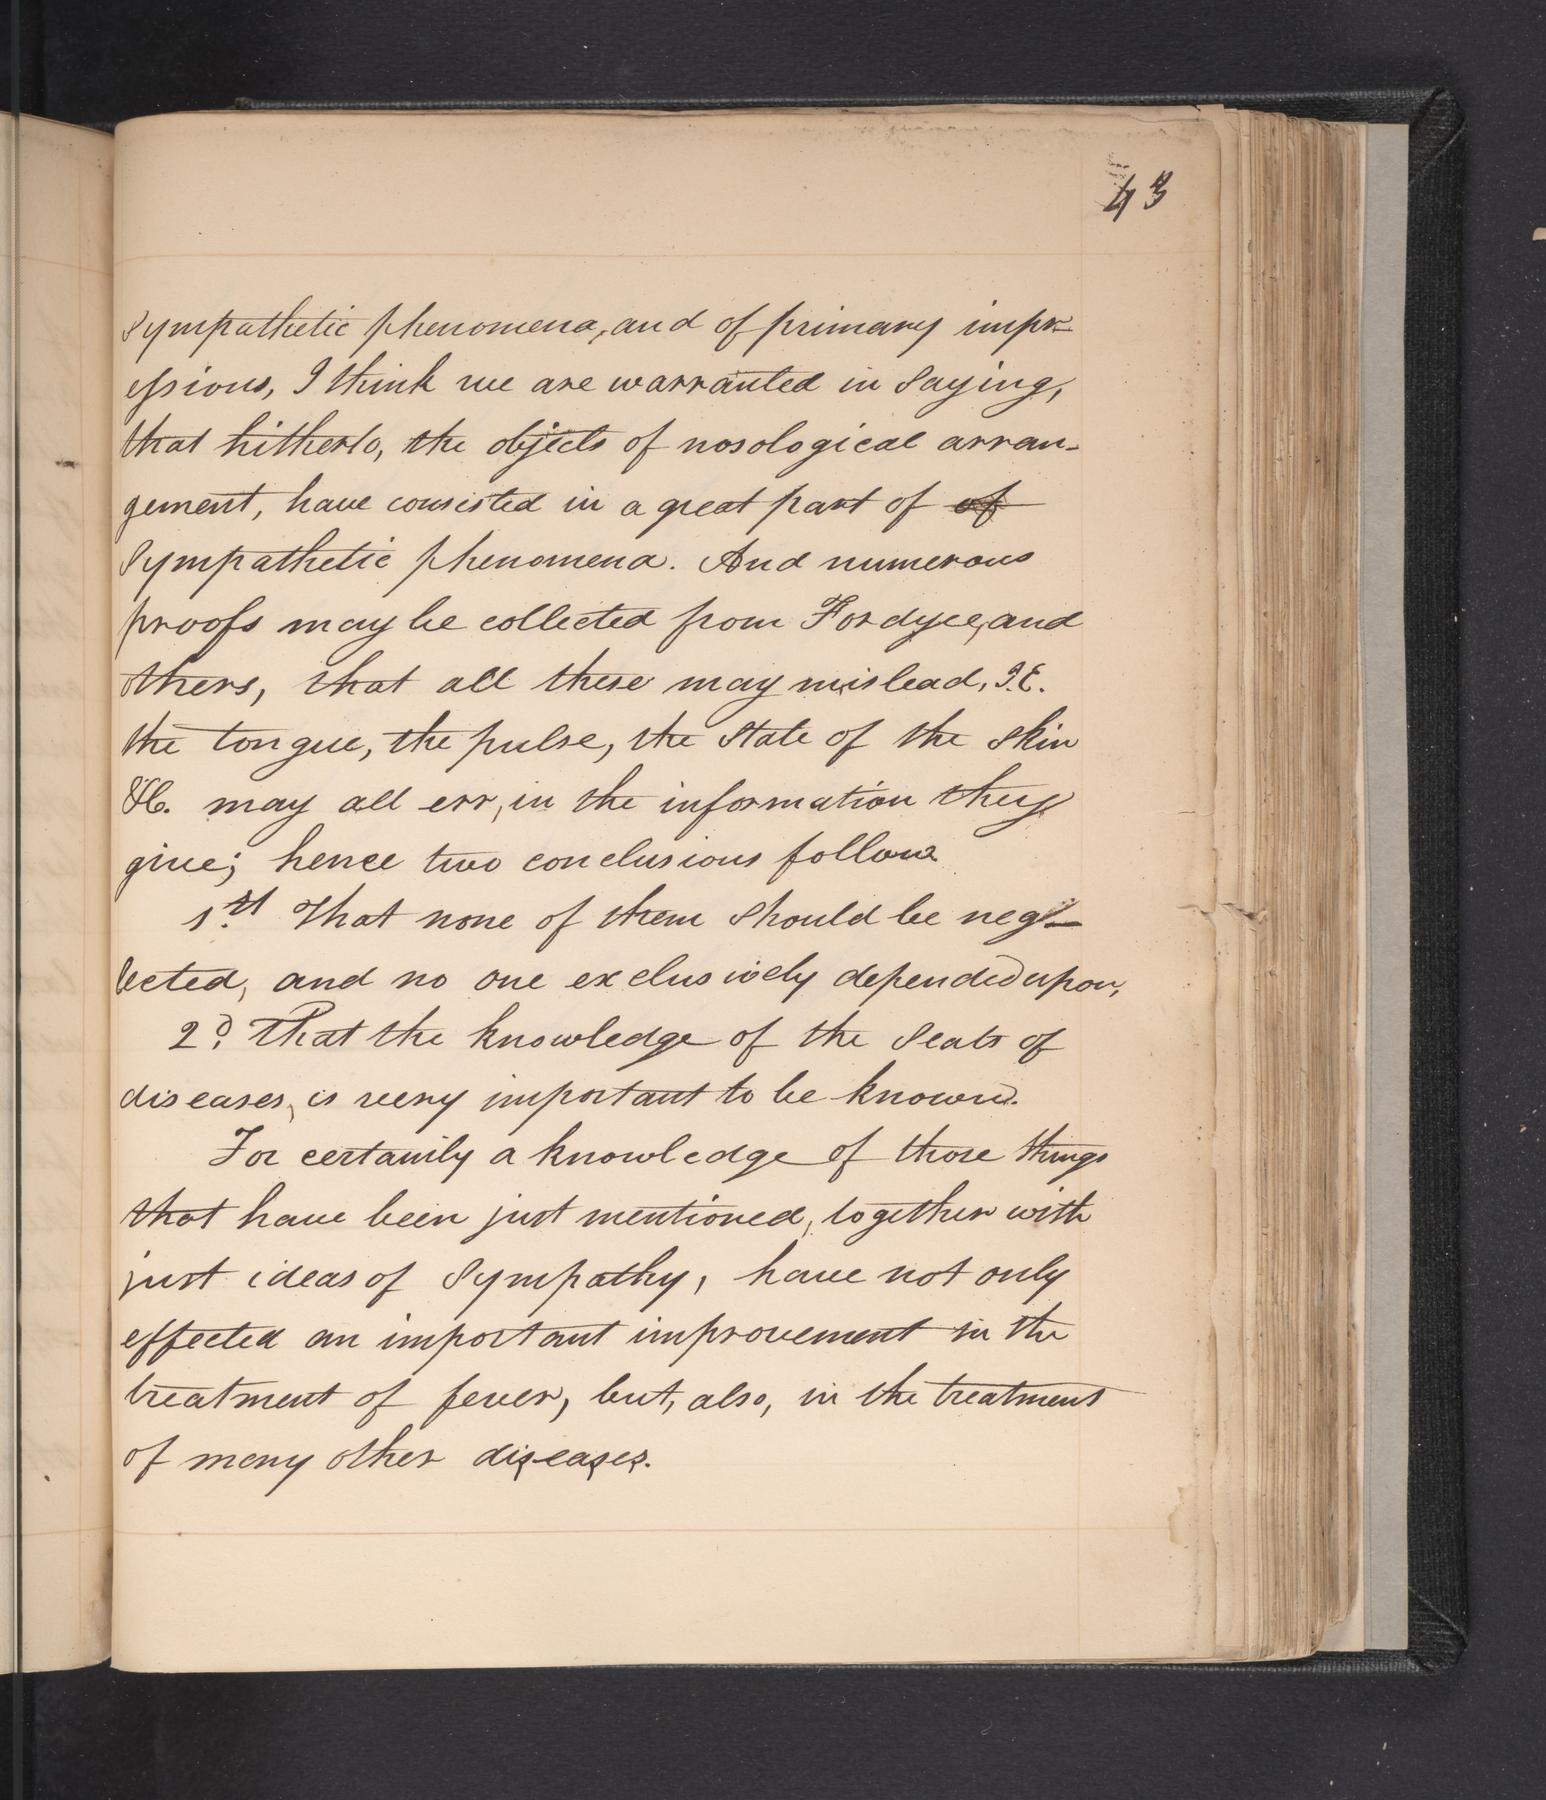 43
Sympathetic phenomena, and of primary impr-
essions, I think we are warranted in saying,
that hitherto, the objects of nosological arran-
gement, have consisted in a great part of of
Sympathetic phenomena. And numerous
proofs may be collected from Fordyce, and
others, that all these may mislead, I.E.
the tongue, the pulse, the state of the skin
&C. may all err, in the information they
give; hence two conclusions follow.
1st That none of them should be neg-
lected, and no one exclusively depended upon,
2d That the knowledge of the Seats of
diseases, is very important to be known.
For certainly a knowledge of those things
that have been just mentioned, together with
just ideas of Sympathy, have not only
effected an important improvement in the
treatment of fever, but, also, in the treatment
of many other diseases.